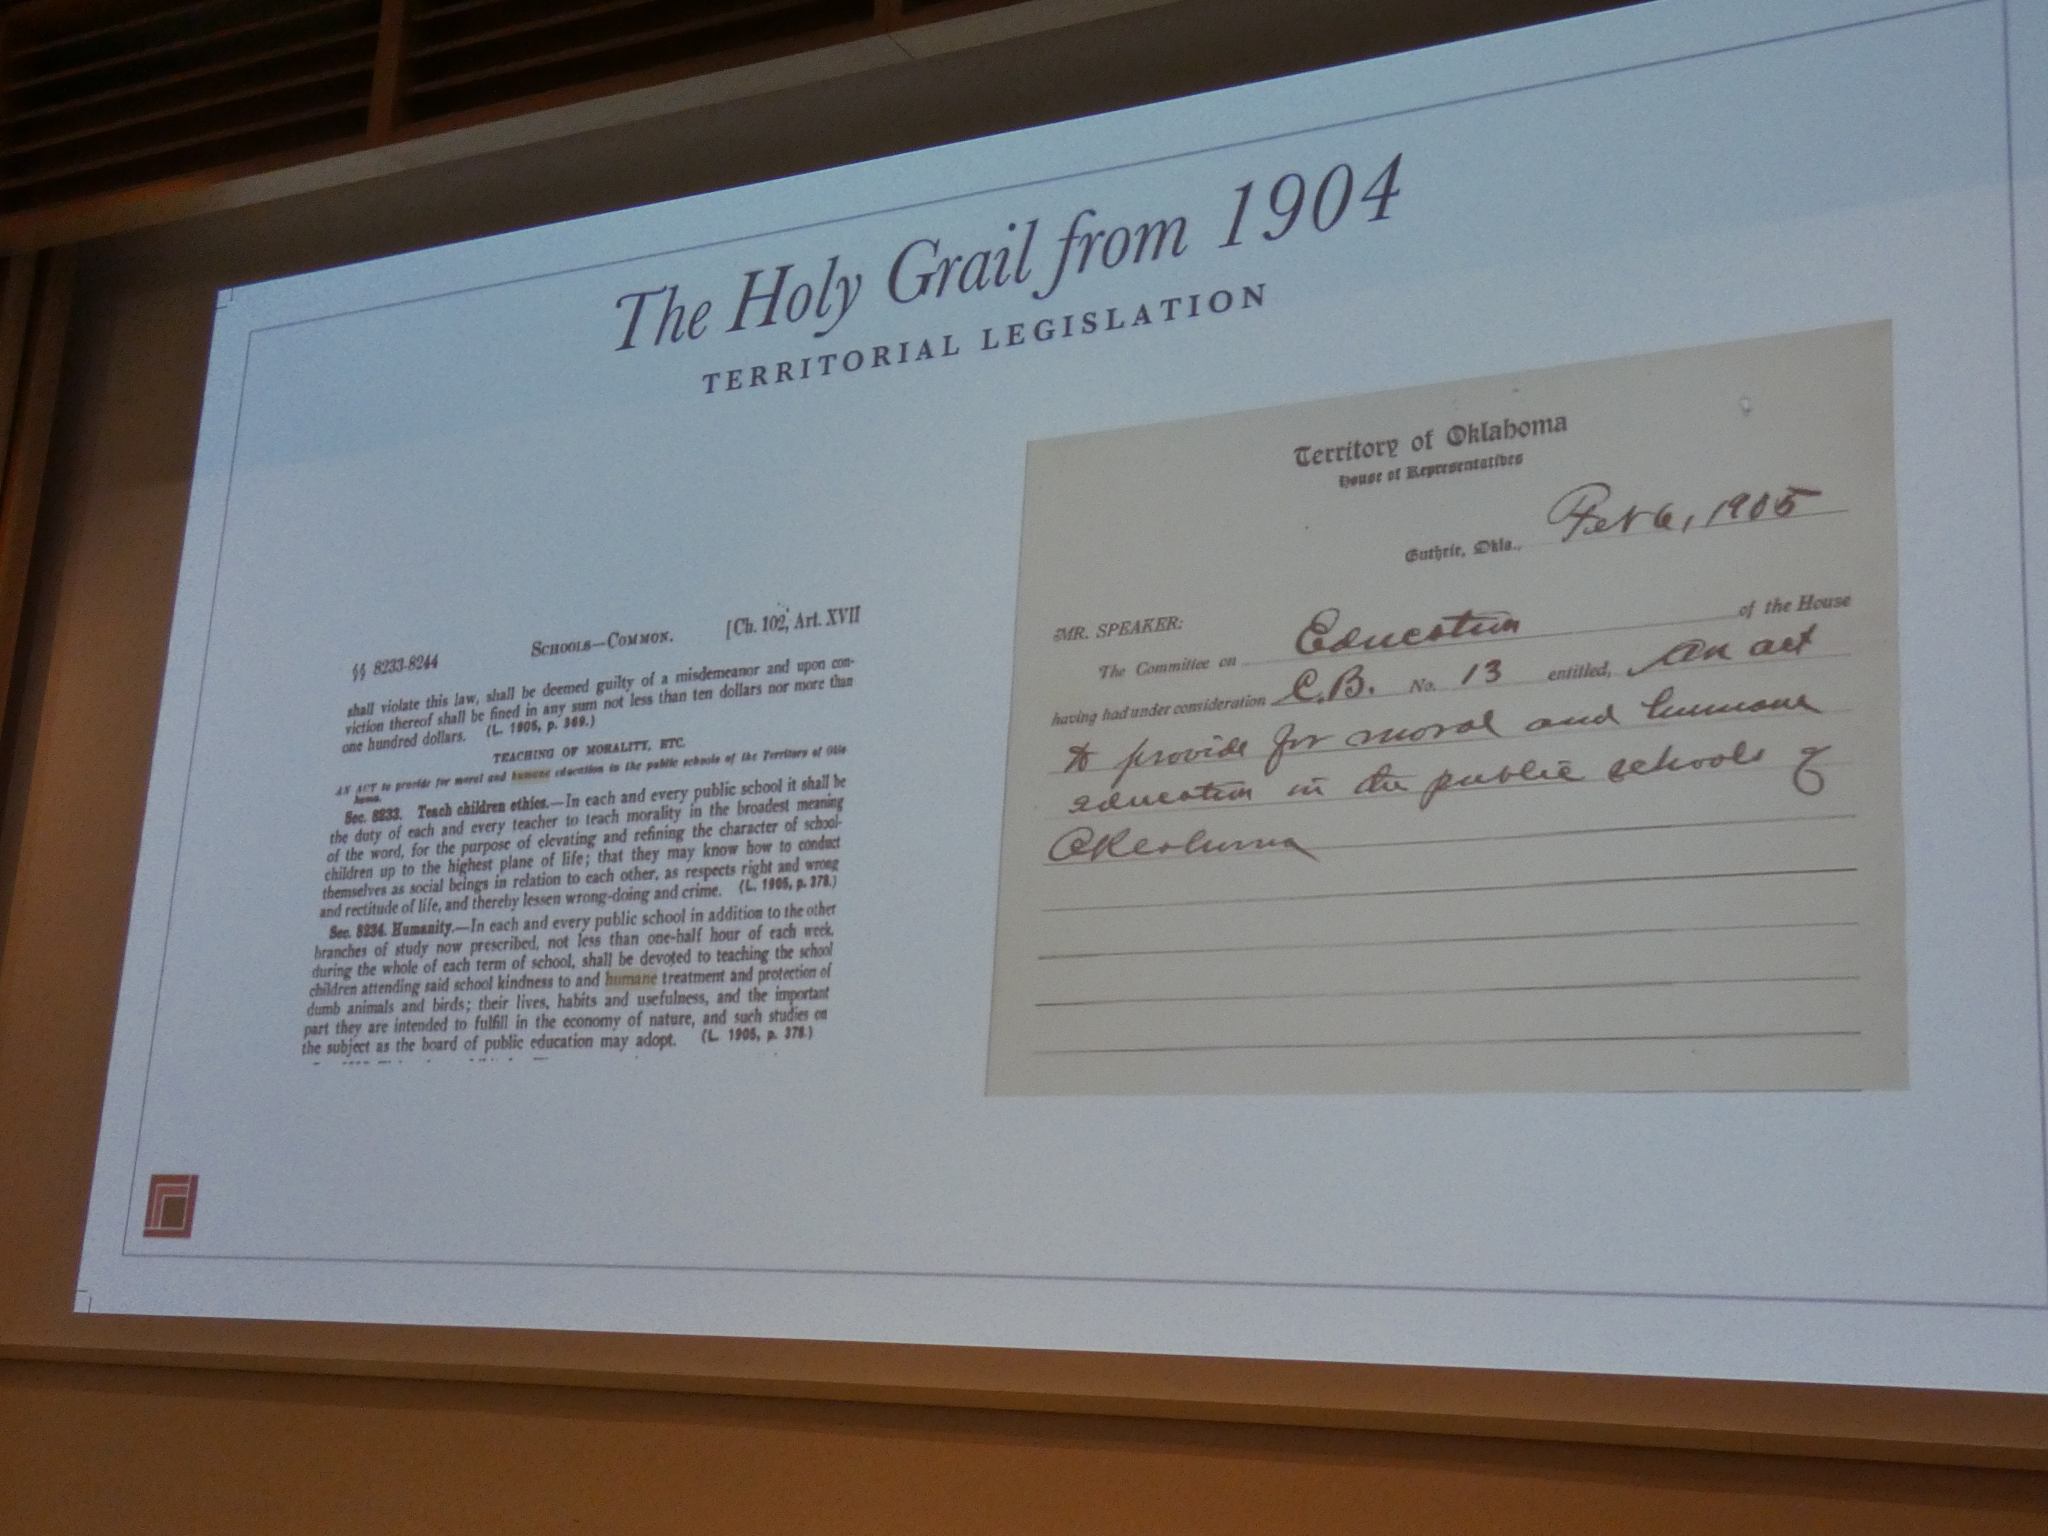 The Holy Grail from 1904
TERRITORIAL LEGISLATION
§§ 8233-8244
SCHOOLS—COMMON.
[Ch. 102, Art. XVII
shall violate this law, shall be deemed guilty of a misdemeanor and upon con-
viction thereof shall be fined in any sum not less than ten dollars nor more than
one hundred dollars. (L. 1905, p. 369.)
TEACHING OF MORALITY, ETC.
AN ACT to provide for moral and humane education in the public schools of the Territory of Okla-
homa.
Sec. 8233. Teach children ethics.—In each and every public school it shall be
the duty of each and every teacher to teach morality in the broadest meaning
of the word, for the purpose of elevating and refining the character of school-
children up to the highest plane of life; that they may know how to conduct
themselves as social beings in relation to each other, as respects right and wrong
and rectitude of life, and thereby lessen wrong-doing and crime. (L. 1905, p. 378.)
Sec. 8234. Humanity.—In each and every public school in addition to the other
branches of study now prescribed, not less than one-half hour of each week,
during the whole of each term of school, shall be devoted to teaching the school
children attending said school kindness to and humane treatment and protection of
dumb animals and birds; their lives, habits and usefulness, and the important
part they are intended to fulfill in the economy of nature, and such studies on
the subject as the board of public education may adopt. (L. 1905, p. 378.)
Territory of Oklahoma
House of Representatives
Guthrie, Okla., Feb 6, 1905
MR. SPEAKER:
The Committee on Education of the House
having had under consideration C.B. No. 13 entitled, An act
to provide for moral and humane
education in the public schools of
Oklahoma